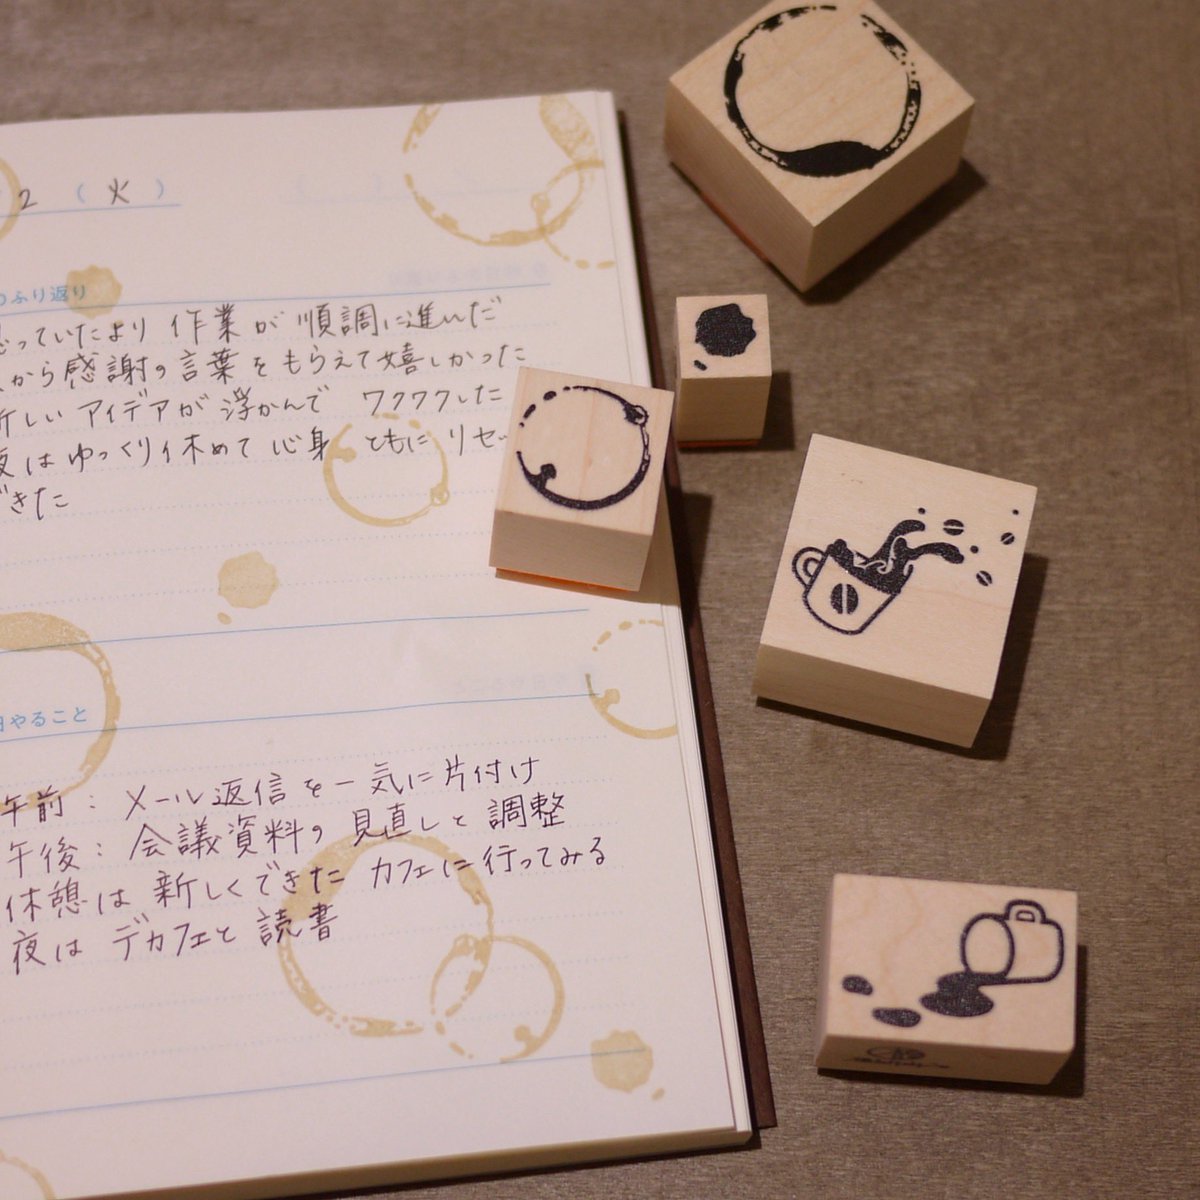 2 (火)
のふり返り
っていたより 作業が 順調に進んだ
から感謝の言葉をもらえて嬉しかった
新しい アイデアが 浮かんで ワクワクした
夜は ゆっくり休めて 心身 ともに リセ
できた
やること
午前: メール返信を一気に片付け
午後: 会議資料の見直しと調整
休憩は 新しくできた カフェに行ってみる
夜は デカフェと 読書